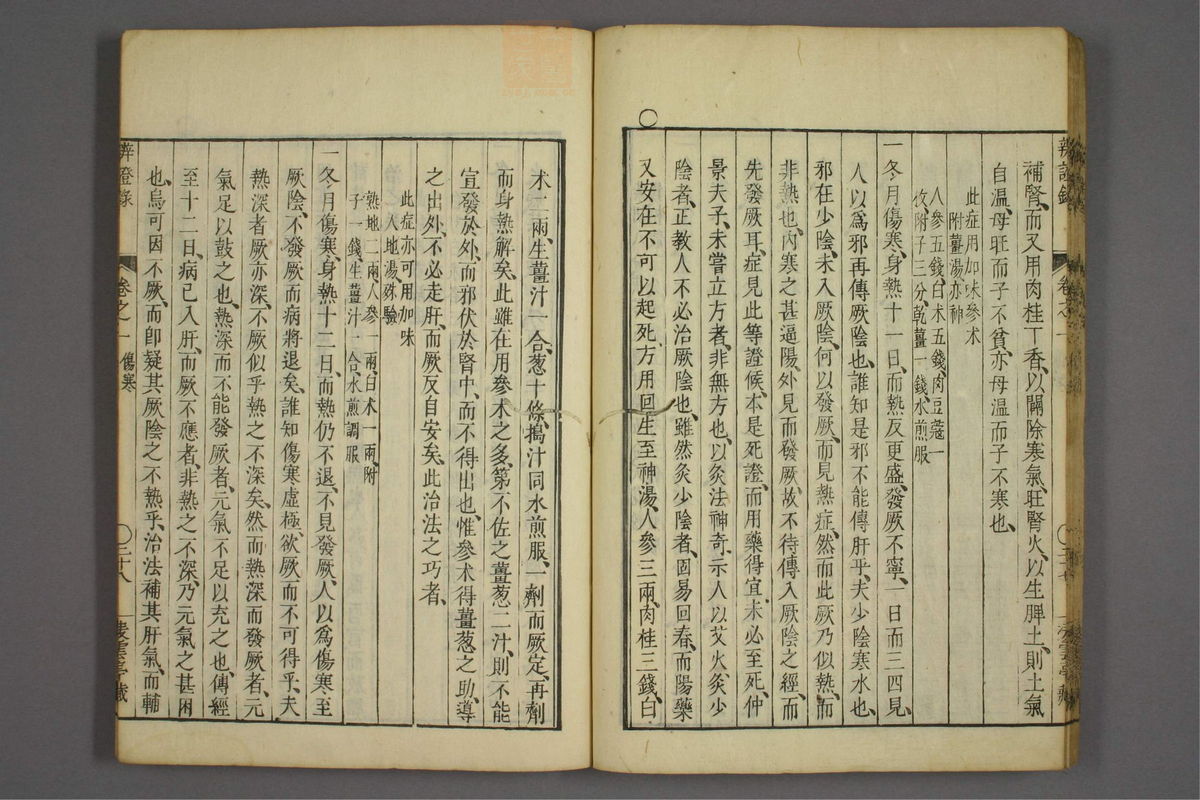 補腎、而又用肉桂丁香、以闢除寒氣、旺腎火、以生脾土、則土氣
自溫、母旺而子不貧、亦母溫而子不寒也、
此症用加味參朮
附薑湯亦神
人參五錢、白朮五錢、肉豆蔻一
枚、附子三分、乾薑一錢、水煎服
一冬月傷寒、身熱十一日、而熱反更盛、發厥不寧、一日而三四見、
人以為邪再傳厥陰也、誰知是邪不能傳肝乎、夫少陰寒水也、
邪在少陰、未入厥陰、何以發厥、而見熱症、然而此厥乃似熱、而
非熱也、內寒之甚、逼陽、外見而發厥、故不待傳入厥陰之經、而
先發厥耳、症見此等證候、本是死證、而用藥得宜、未必至死、仲
景夫子、未嘗立方者、非無方也、以灸法神奇、示人以艾火、灸少
陰者、正教人不必治厥陰也、雖然灸少陰者、固易回春、而陽藥
又安在不可以起死、方用回生至神湯、人參三兩、肉桂三錢、白
〇
辨證錄
卷之一
朮二兩、生薑汁一合、葱十條、搗汁同水煎服、一劑而厥定、再劑
而身熱解矣、此雖在用參朮之多、第不佐之薑葱二汁、則不能
宣發於外、而邪伏於腎中、而不得出也、惟參朮得薑葱之助、導
之出外、不必走肝、而厥反自安矣、此治法之巧者、
此症亦可用加味
人地湯殊驗
熟地二兩、人參一兩、白朮一兩、附
子一錢、生薑汁一合、水煎調服
一冬月傷寒、身熱十二日、而熱仍不退、不見發厥、人以為傷寒至
厥陰、不發厥而病將退矣、誰知傷寒虛極、欲厥而不可得乎、夫
熱深者厥亦深、不厥似乎熱之不深矣、然而熱深而發厥者、元
氣足以鼓之也、熱深而不能發厥者、元氣不足以充之也、傳經
至十二日、病已入肝、而厥不應者、非熱之不深、乃元氣之甚困
也、烏可因不厥、而卽疑其厥陰之不熱乎、治法補其肝氣、而輔
辨證錄
卷之一 傷寒
〇三十八